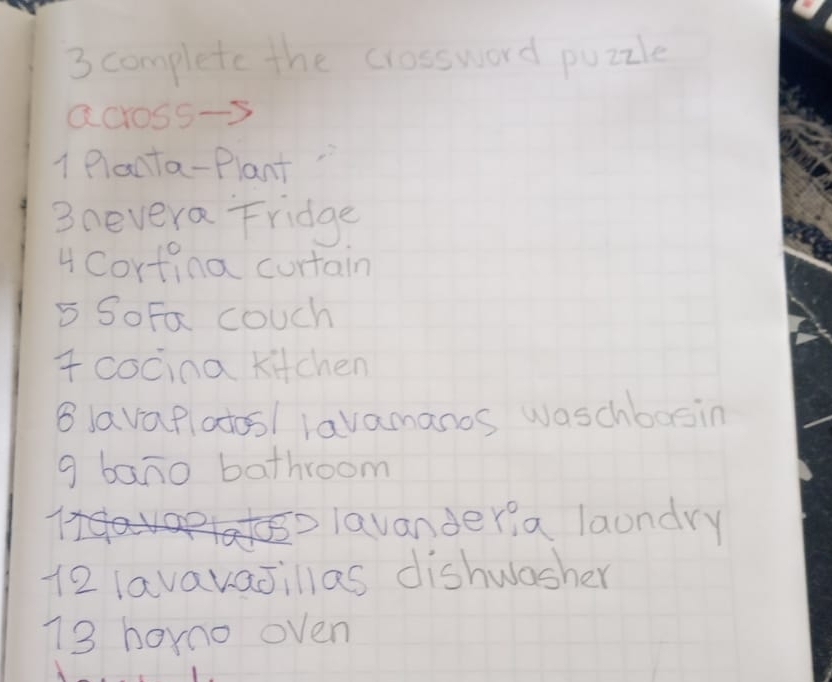 3 complete the crossword puzzle
across→
1 Planta-Plant
3 nevera Fridge
4 Cortina curtain
5 SoFa couch
7 cocina kitchen
8 lavaplatos/lavamanos waschbasin
9 baño bathroom
11 lavandería laundry
12 lavavajillas dishwasher
13 horno oven